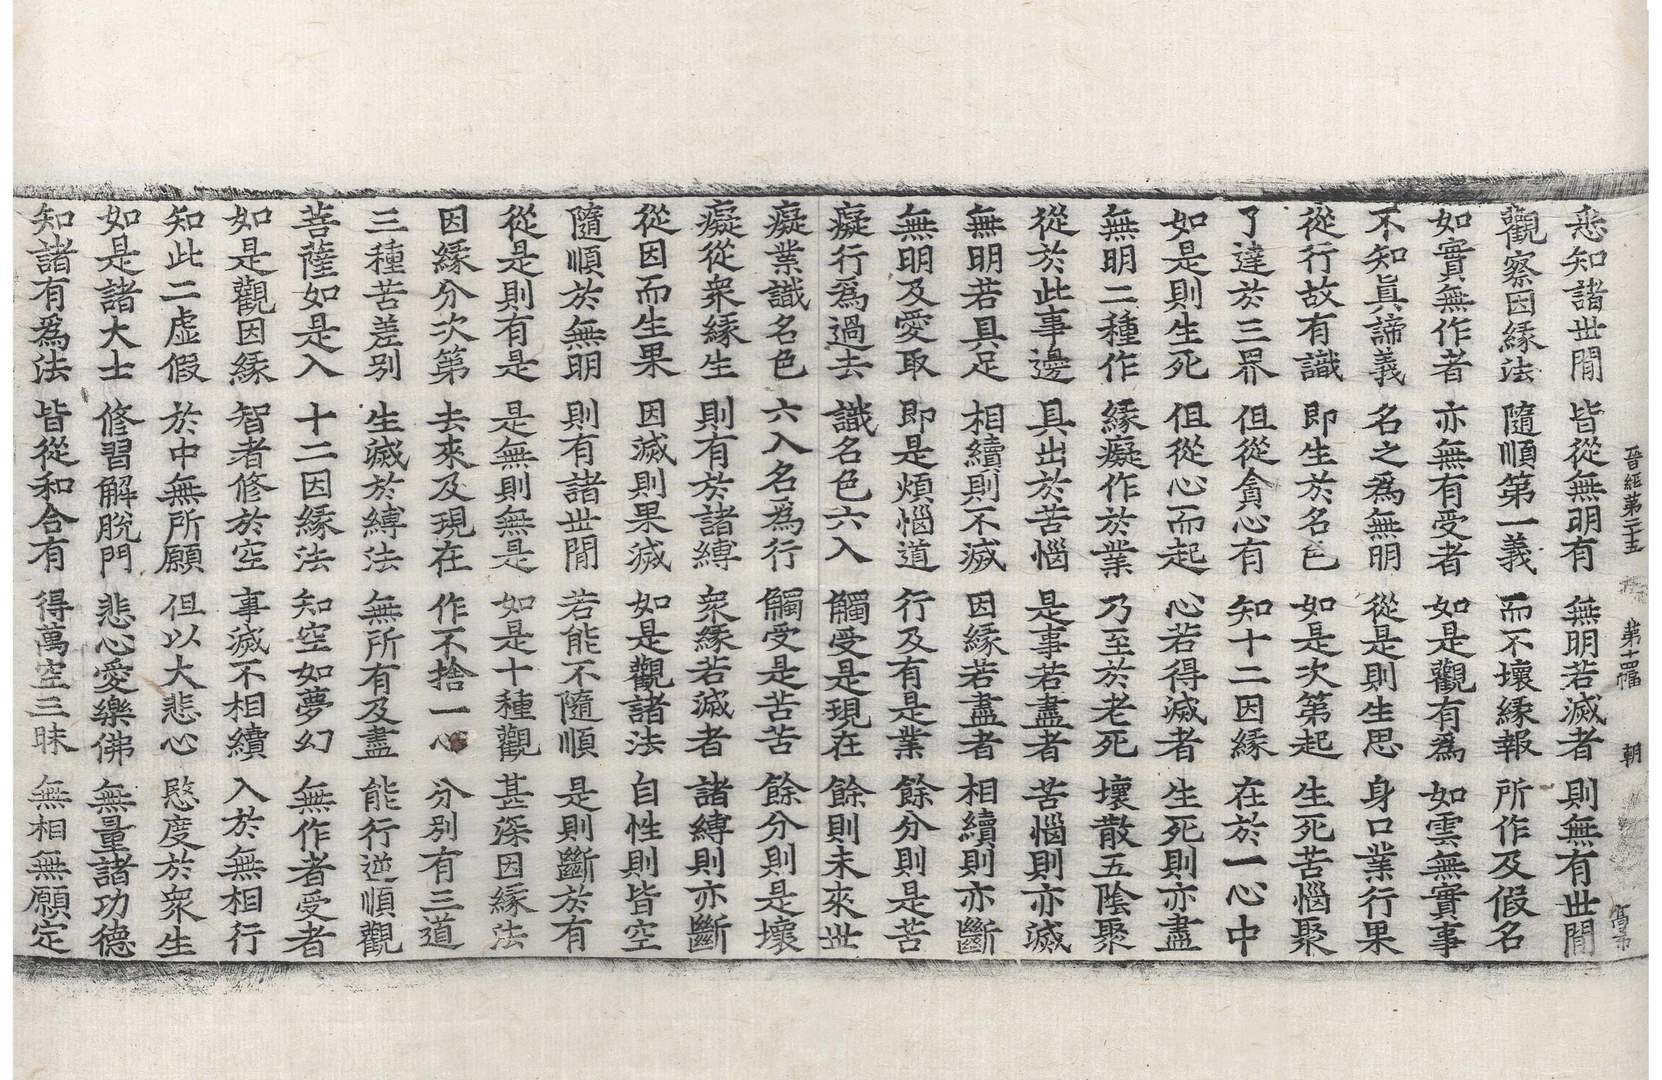 晉經第二十五　第十四幅　朝
悉知諸世間　皆從無明有　無明若滅者　則無有世間
觀察因緣法　隨順第一義　而不壞緣報　所作及假名
如實無作者　亦無有受者　如是觀有爲　如雲無實事
不知眞諦義　名之爲無明　從是則生思　身口業行果
從行故有識　即生於名色　如是次第起　生死苦惱聚
了達於三界　但從貪心有　知十二因緣　在於一心中
如是則生死　但從心而起　心若得滅者　生死則亦盡
無明二種作　緣癡作於業　乃至於老死　壞散五陰聚
從於此事邊　具出於苦惱　是事若盡者　苦惱則亦滅
無明若具足　相續則不滅　因緣若盡者　相續則亦斷
無明及愛取　即是煩惱道　行及有是業　餘分則是苦
癡行爲過去　識名色六入　觸受是現在　餘則未來世
癡業識名色　六入名爲行　觸受是苦苦　餘分則是壞
癡從衆緣生　則有於諸縛　衆緣若滅者　諸縛則亦斷
從因而生果　因滅則果滅　如是觀諸法　自性則皆空
隨順於無明　則有諸世間　若能不隨順　是則斷於有
從是則有是　是無則無是　如是十種觀　甚深因緣法
因緣分次第　去來及現在　作不捨一心　分別有三道
三種苦差別　生滅於縛法　無所有及盡　能行逆順觀
菩薩如是入　十二因緣法　知空如夢幻　無作者受者
如是觀因緣　智者修於空　事滅不相續　入於無相行
知此二虛假　於中無所願　但以大悲心　愍度於衆生
如是諸大士　修習解脫門　悲心愛樂佛　無量諸功德
知諸有爲法　皆從和合有　得萬空三昧　無相無願定